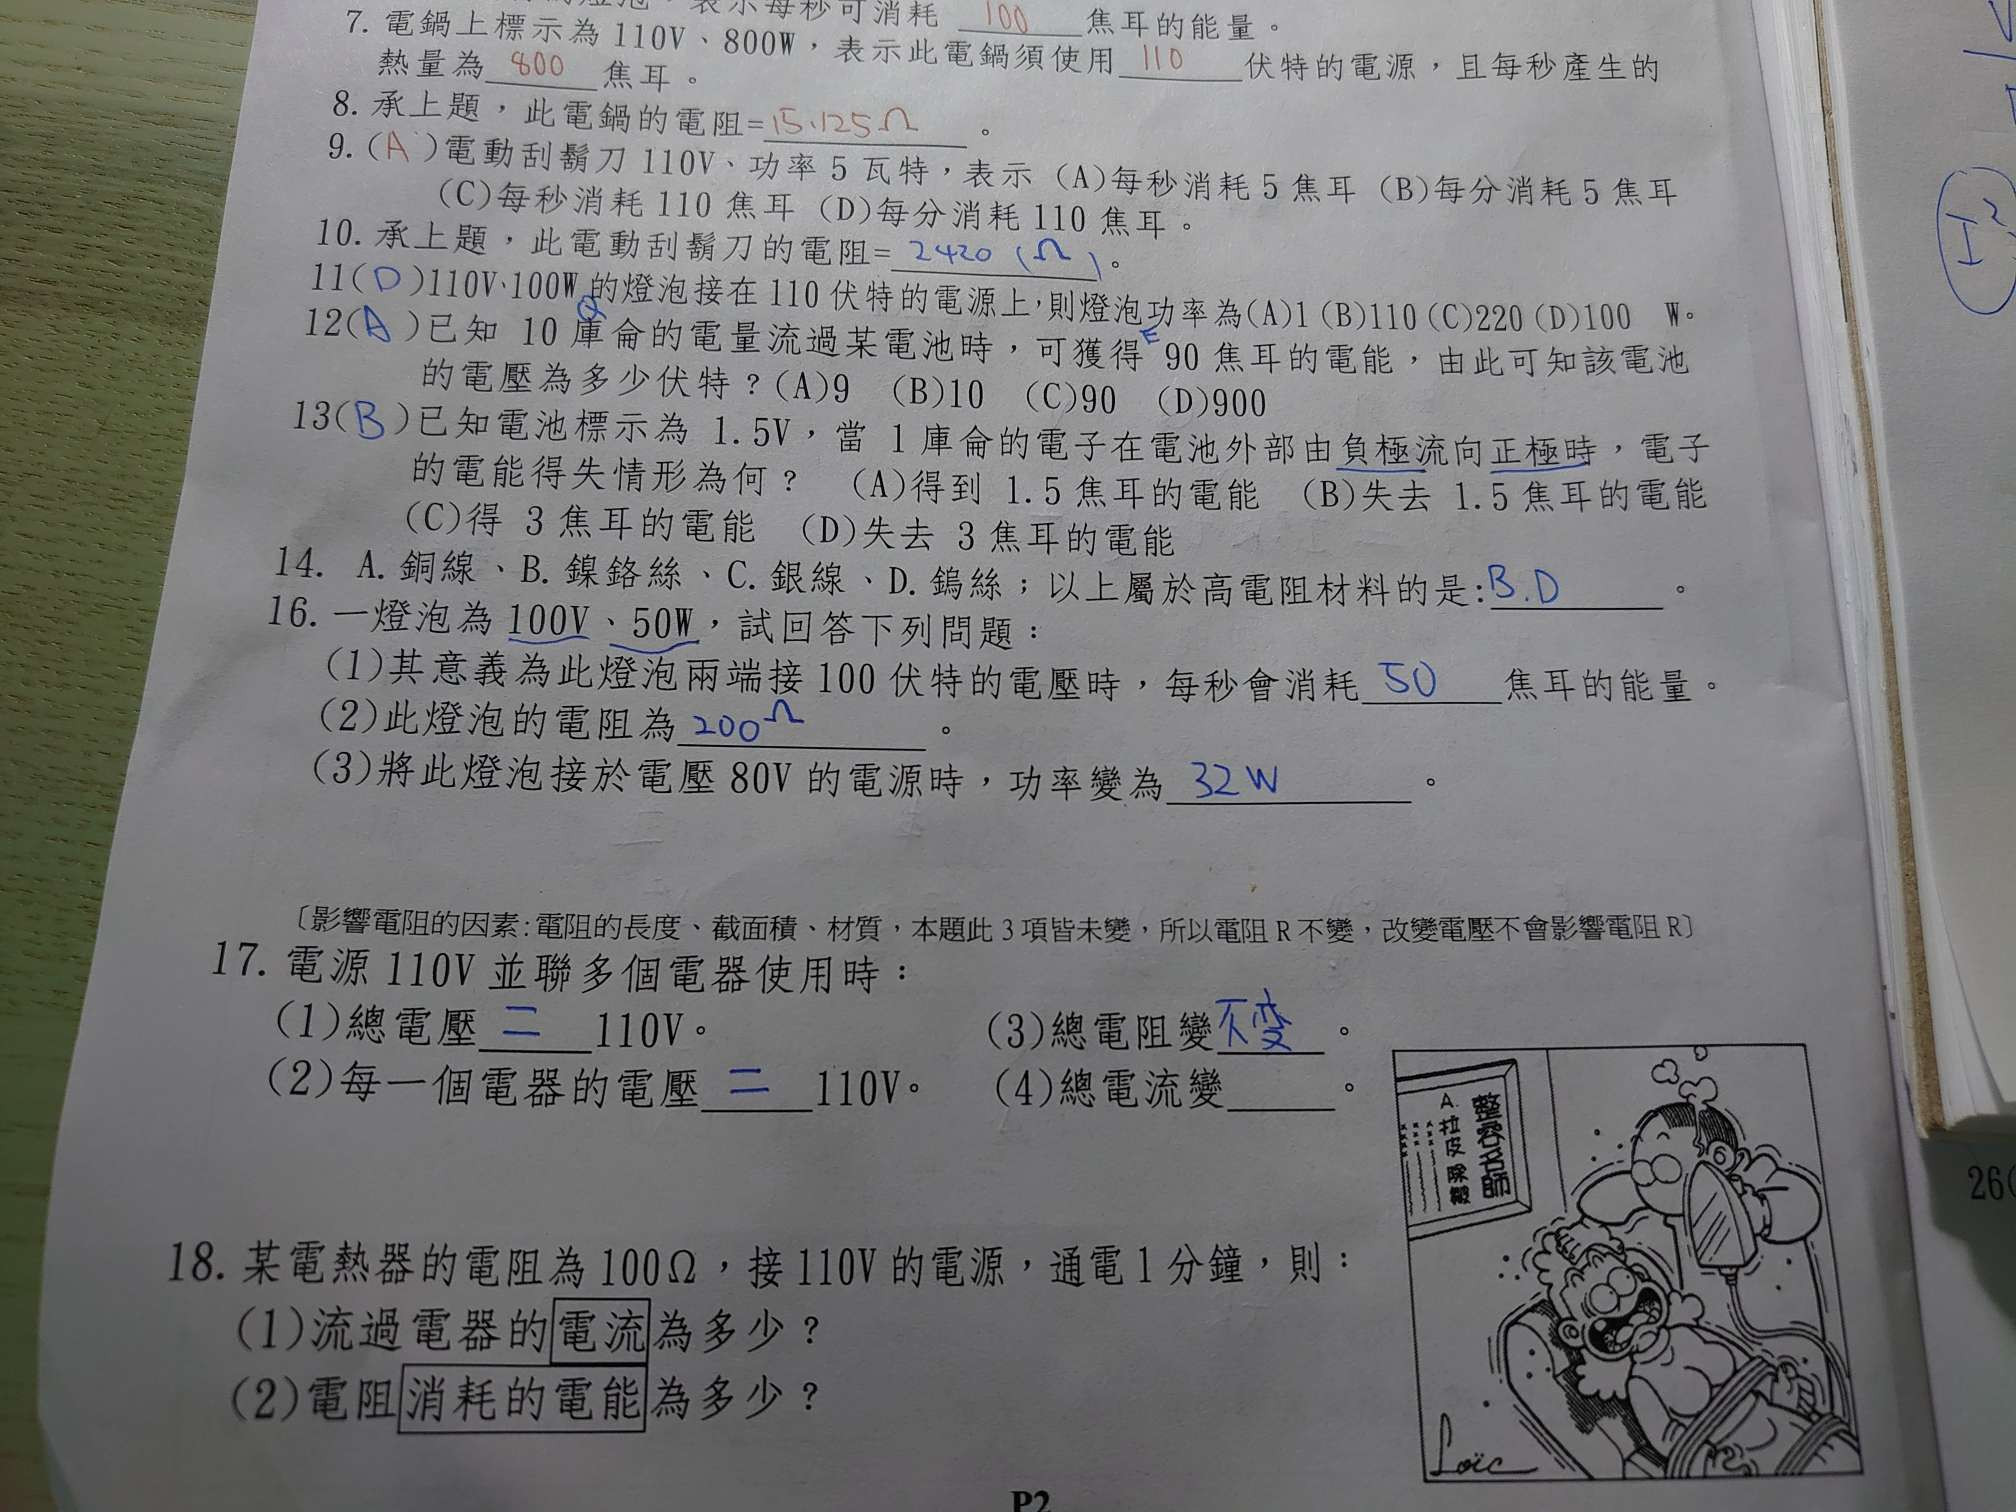 表示每秒可消耗 100 焦耳的能量。
7. 電鍋上標示為 110V、800W，表示此電鍋須使用 110 伏特的電源，且每秒產生的
熱量為 800 焦耳。
8. 承上題，此電鍋的電阻=15.125Ω。
9. (A)電動刮鬍刀 110V、功率 5 瓦特，表示 (A)每秒消耗 5 焦耳 (B)每分消耗 5 焦耳
(C)每秒消耗 110 焦耳 (D)每分消耗 110 焦耳。
10. 承上題，此電動刮鬍刀的電阻= 2420 (Ω)。
11(D)110V、100W 的燈泡接在 110 伏特的電源上，則燈泡功率為(A)1 (B)110 (C)220 (D)100 W。
Q
12(A)已知 10 庫侖的電量流過某電池時，可獲得 E 90 焦耳的電能，由此可知該電池
的電壓為多少伏特？(A)9 (B)10 (C)90 (D)900
13(B)已知電池標示為 1.5V，當 1 庫侖的電子在電池外部由負極流向正極時，電子
的電能得失情形為何？ (A)得到 1.5 焦耳的電能 (B)失去 1.5 焦耳的電能
(C)得 3 焦耳的電能 (D)失去 3 焦耳的電能
14. A.銅線、B.鎳鉻絲、C.銀線、D.鎢絲；以上屬於高電阻材料的是:B.D。
16. 一燈泡為 100V、50W，試回答下列問題：
(1)其意義為此燈泡兩端接 100 伏特的電壓時，每秒會消耗 50 焦耳的能量。
(2)此燈泡的電阻為 200Ω。
(3)將此燈泡接於電壓 80V 的電源時，功率變為 32W。
〔影響電阻的因素:電阻的長度、截面積、材質，本題此 3 項皆未變，所以電阻 R 不變，改變電壓不會影響電阻 R〕
17. 電源 110V 並聯多個電器使用時：
(1)總電壓 = 110V。
(3)總電阻變 不变。
(2)每一個電器的電壓 = 110V。
(4)總電流變。
整容名師
A.拉皮 除皺
18. 某電熱器的電阻為 100Ω，接 110V 的電源，通電 1 分鐘，則：
(1)流過電器的電流為多少？
(2)電阻消耗的電能為多少？
Loïc
P2
I²
26(